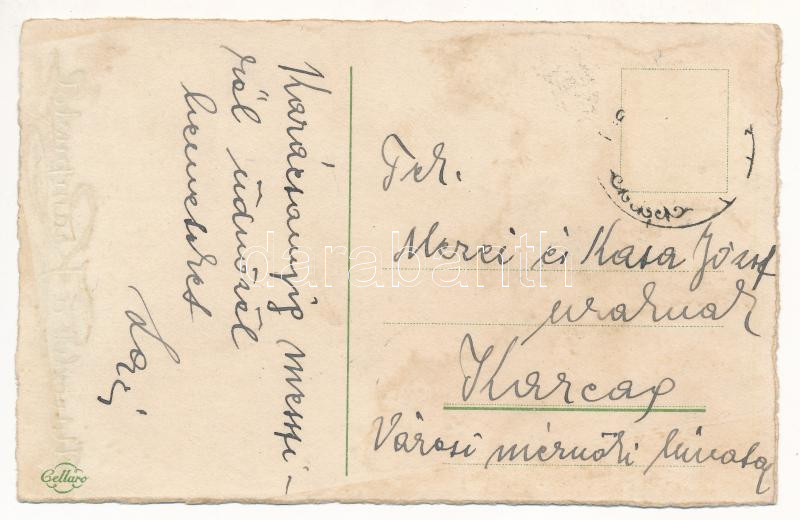 Karácsonyig messzi-
ről üdvözöl
benneteket
Laci
Tek.
Mezei és Kasa József
uraknak
Karcag
Városi mérnöki hivatal
Cellaro
darabanth